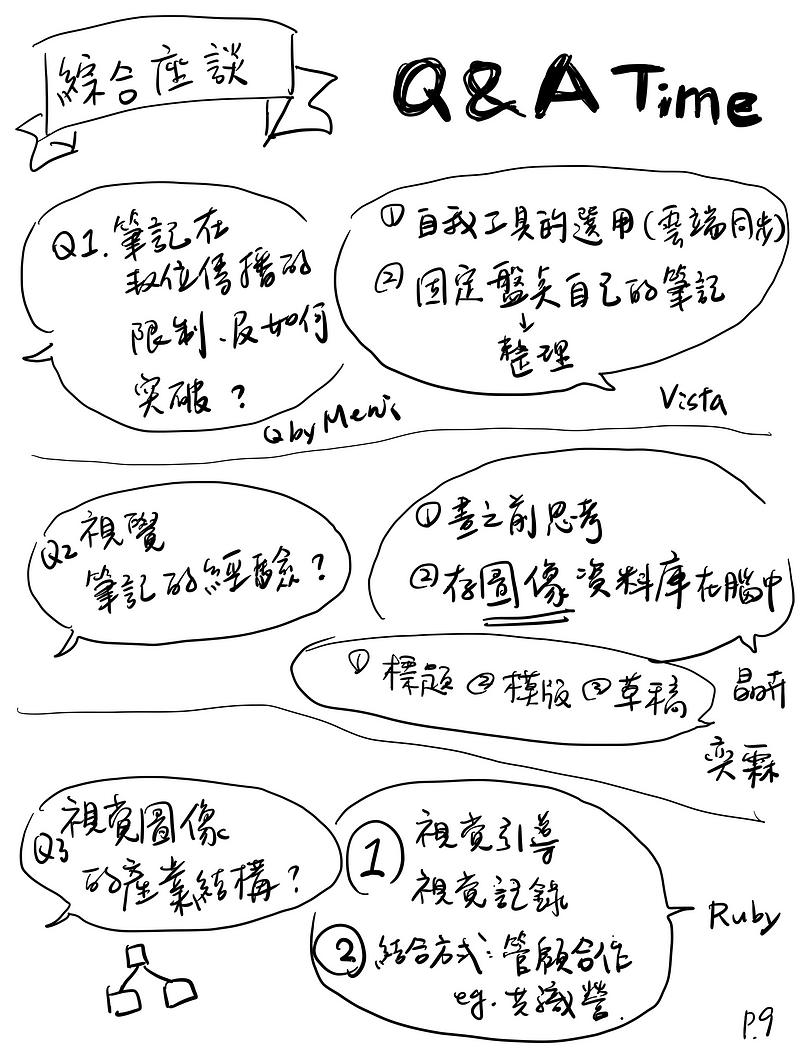 綜合座談
Q&A Time
Q1. 筆記在
數位傳播的
限制、及如何
突破?
Q by Meni
① 自我工具的選用(雲端同步)
② 固定盤點自己的筆記
↓
整理
Vista
Q2 視覺
筆記的經驗?
① 畫之前思考
② 存圖像資料庫在腦中
晶卉
① 標題 ② 模版 ③ 草稿
奕霖
Q3 視覺圖像
的產業結構?
① 視覺引導
視覺記錄
② 結合方式:管顧合作
eg. 共識營.
Ruby
P.9